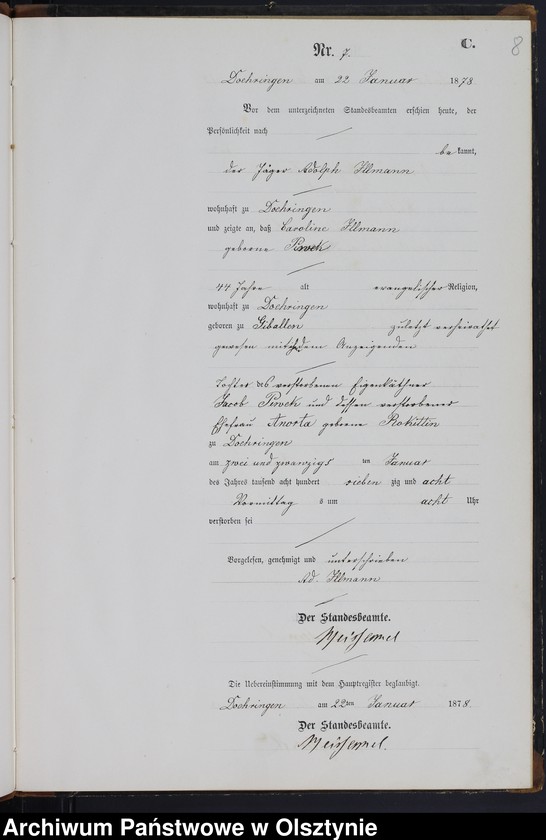 C.
8
Nr. 7.
Doehringen am 22 Januar 1878
Vor dem unterzeichneten Standesbeamten erschien heute, der
Persönlichkeit nach
be kannt,
der Jäger Adolph Illmann
wohnhaft zu Doehringen
und zeigte an, daß Caroline Illmann
geborne
44 Jahre alt evangelischer Religion,
wohnhaft zu Doehringen
geboren zu zuletzt verheirathet
gewesen mit dem Anzeigenden
Tochter des verstorbenen Eigenkäthner
Jacob und dessen verstorbener
Ehefrau geborne
zu Doehringen
am zwei und zwanzigs ten Januar
des Jahres tausend acht hundert sieben zig und acht
Vormittag s um acht Uhr
verstorben sei
Vorgelesen, genehmigt und unterschrieben
Ad. Illmann
Der Standesbeamte.
Die Uebereinstimmung mit dem Hauptregister beglaubigt.
Doehringen am 22ten Januar 1878.
Der Standesbeamte.
Archiwum Państwowe w Olsztynie